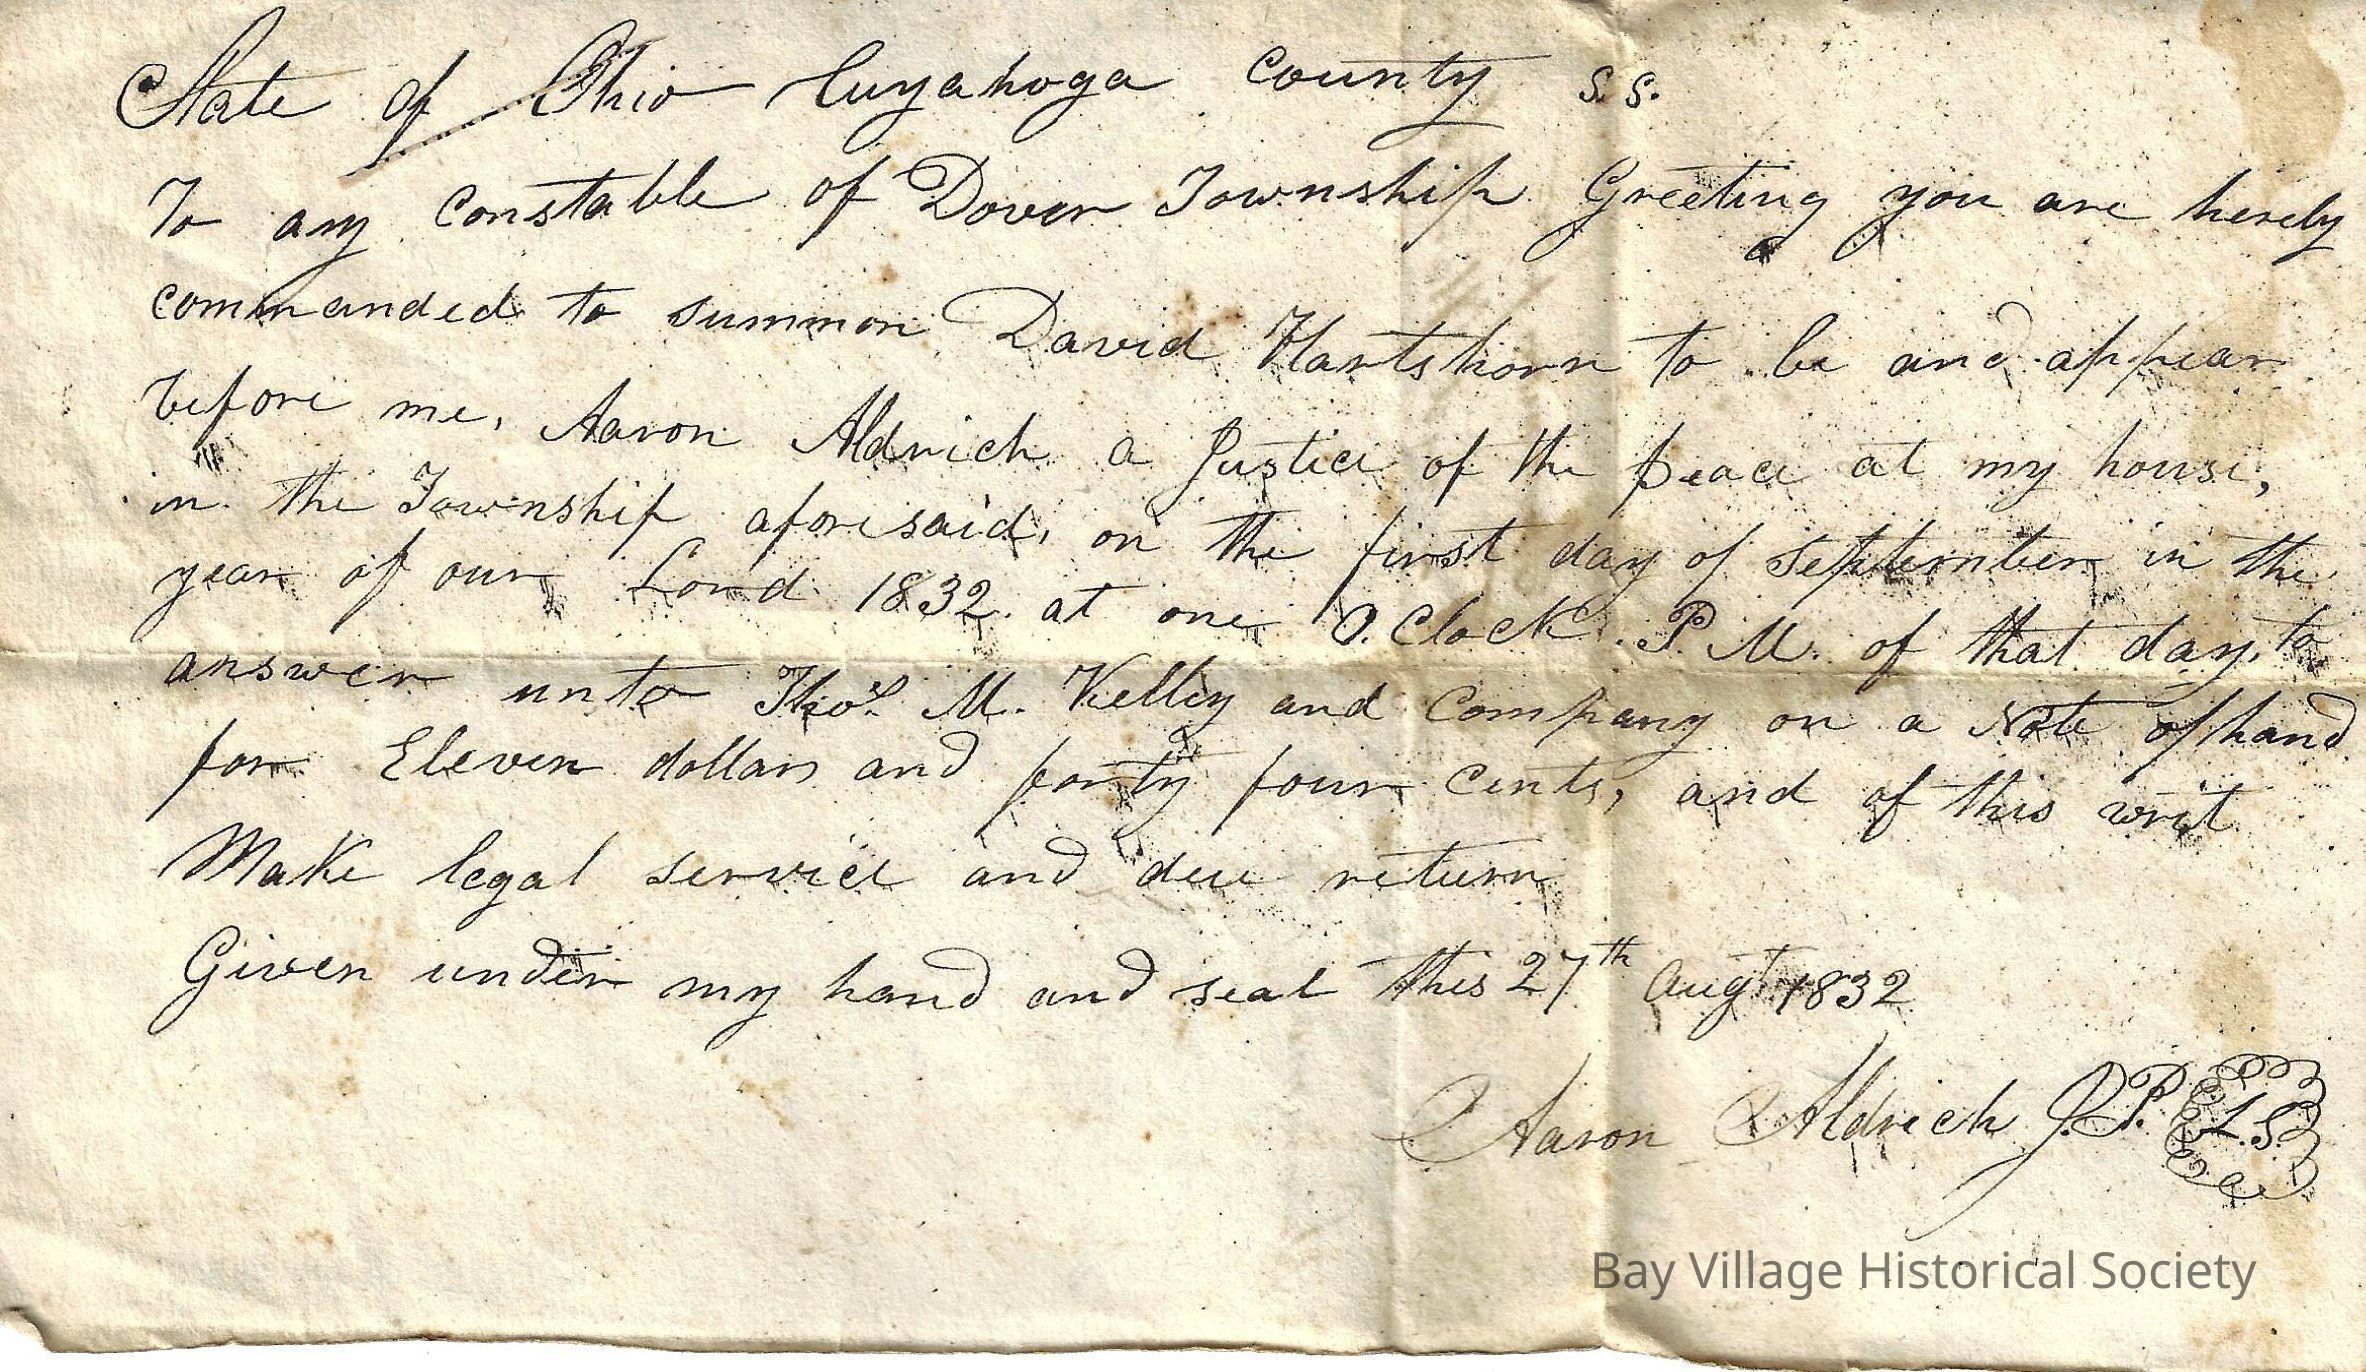 State of Ohio Cuyahoga County s.s.
To any constable of Dover Township Greeting you are hereby
commanded to summon David Hartshorn to be and appear
before me, Aaron Aldrich a Justice of the peace at my house,
in the Township aforesaid, on the first day of September in the
year of our Lord 1832 at one O.Clock. P. M. of that day, to
answer unto Thos. M. Kelley and Company on a Note of hand
for Eleven dollars and forty four cents, and of this writ
Make legal service and due return
Given under my hand and seal this 27th Augt 1832
Aaron Aldrich J.P. L.S.
Bay Village Historical Society